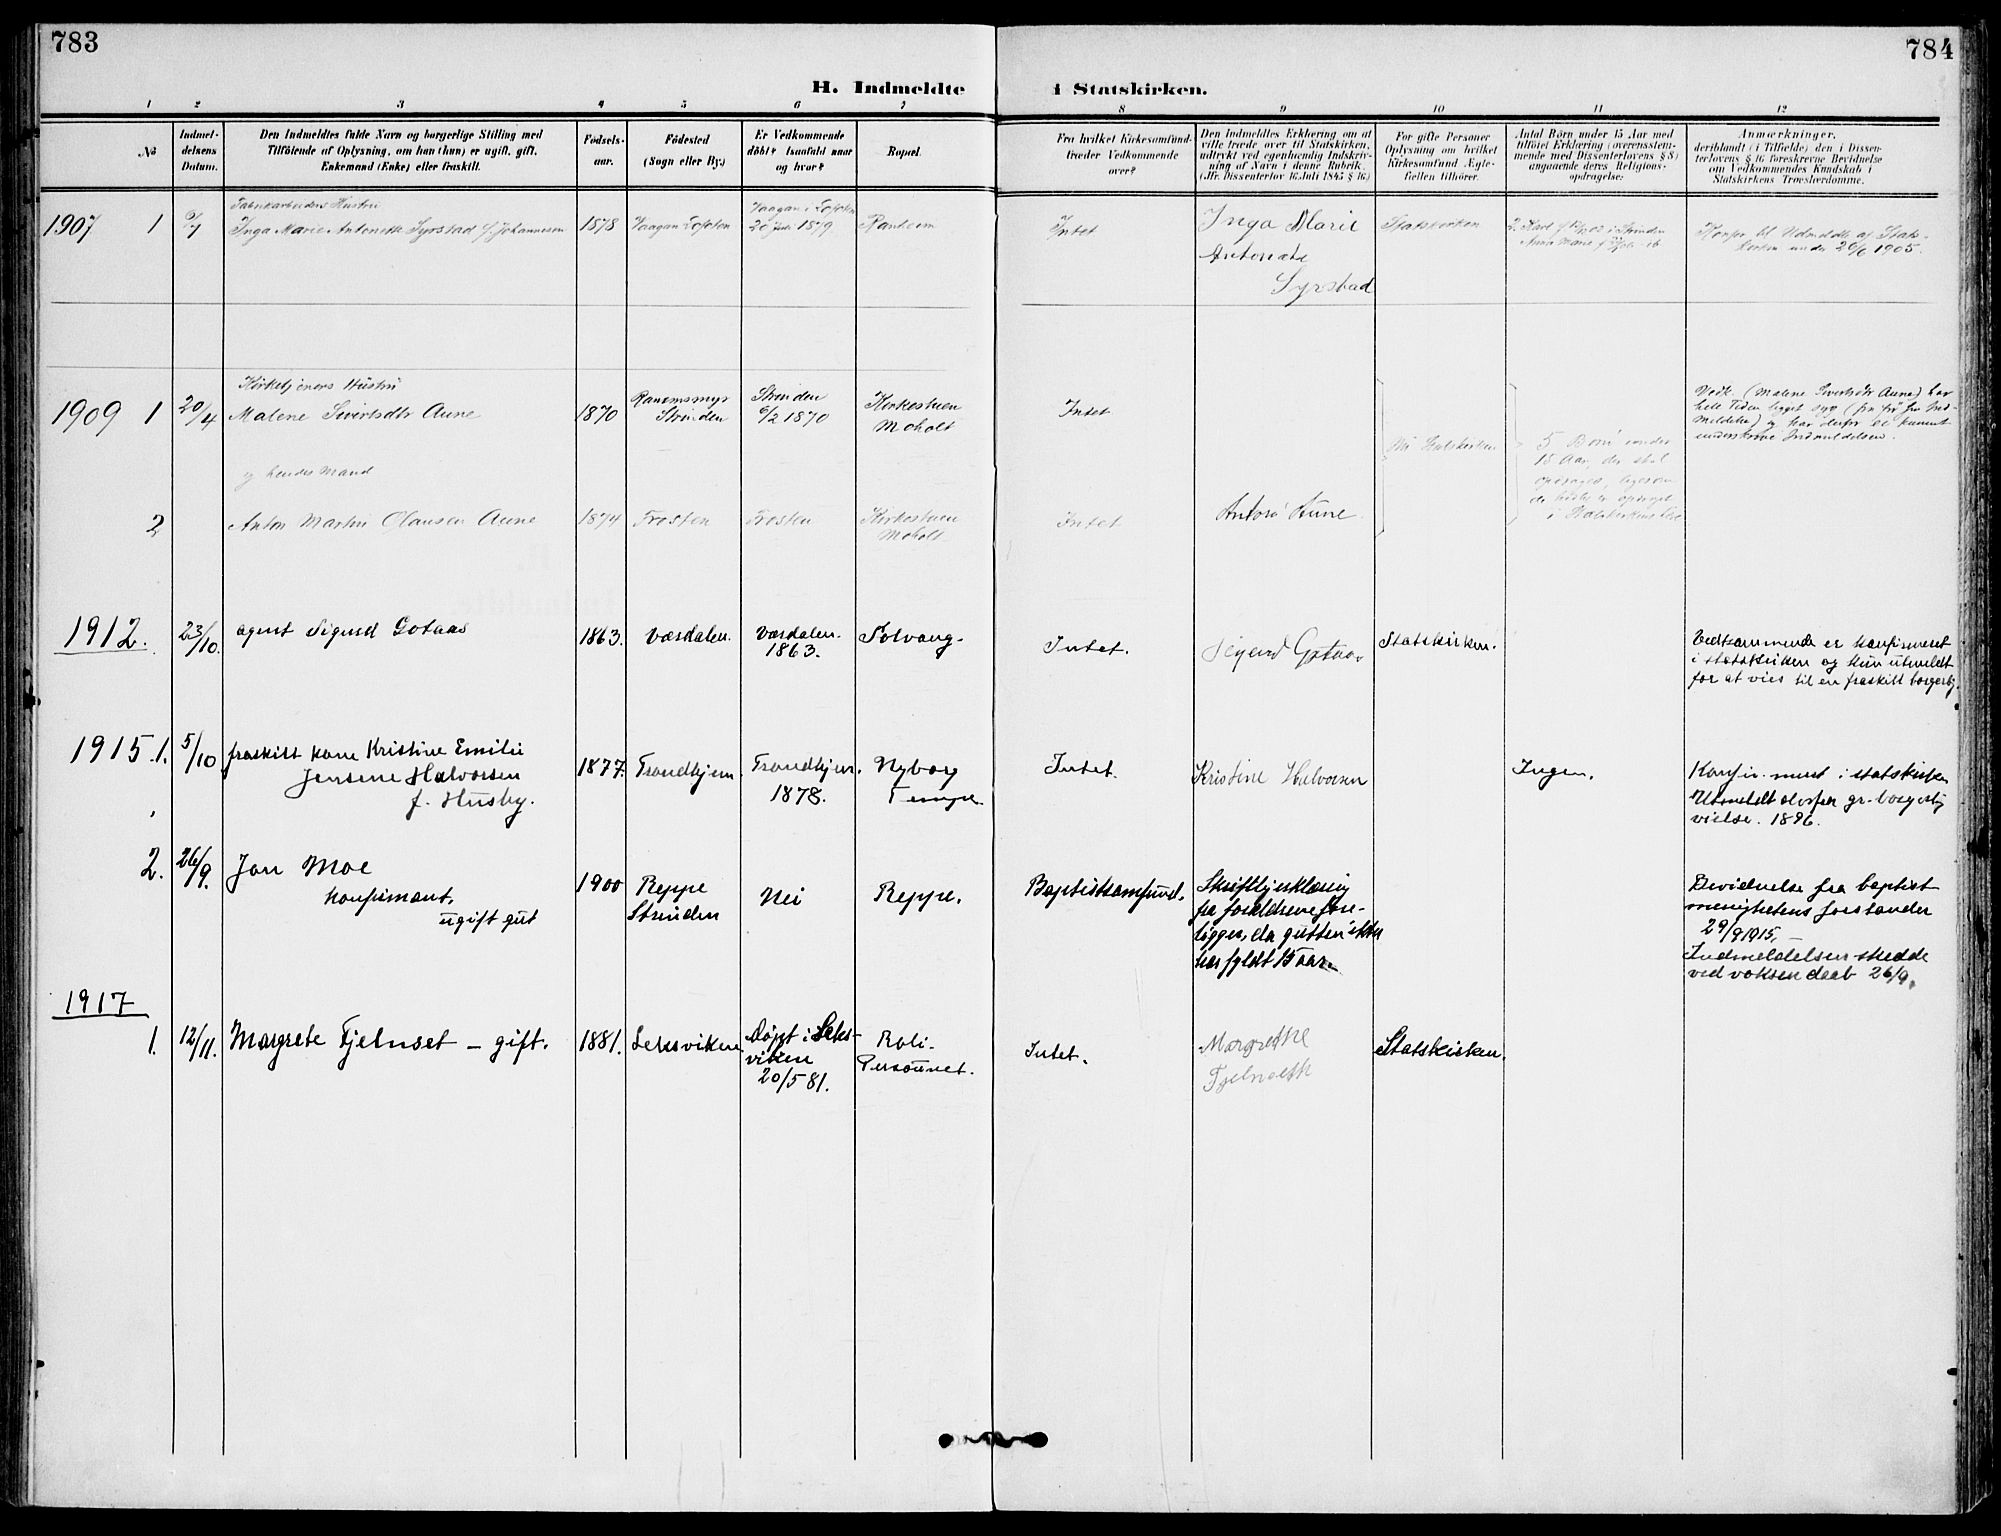 783
784
H. Indmeldte
i Statskirken.
1 2 3 4 5 6 7 8 9 10 11 12
No
Indmel-
delsens
Datum.
Den Indmeldtes fulde Navn og borgerlige Stilling med
Tilföiende af Oplysning, om han (hun) er ugift, gift,
Enkemand (Enke) eller fraskilt.
Födsels-
aar.
Födested
(Sogn eller By.)
Er Vedkommende
döbt? Isaafald naar
og hvor?
Bopæl.
Fra hvilket Kirkesamfund
træder Vedkommende
over?
Den Indmeldtes Erklæring om at
ville træde over til Statskirken,
udtrykt ved egenhændig Indskriv-
ning af Navn i denne Rubrik.
(Jfr. Dissenterlov 16 Juli 1845 § 16)
For gifte Personer
Oplysning om hvilket
Kirkesamfund Ægte-
fællen tilhører.
Antal Börn under 15 Aar med
tilföiet Erklæring (overensstem-
mende med Dissenterlovens § 8)
angaaende deres Religions-
opdragelse:
Anmærkninger,
deriblandt (i Tilfælde) den i Dissen-
terlovens § 16 foreskrevne Bevidnelse
om Vedkommendes Kundskab i
Statskirkens Troeslærdomme.
1907 1
Fabrikarbeiders Hustru
Inga Marie Antonette Syrstad f. Johannesen
1878
Vaagan Lofoten
Vaagan i Lofoten
20 Juli 1879
Ranheim
Intet
Inga Marie
Antonete
Syrstad
Statskirken
Konfr til Udmeldte af Stats-
kirken under 26/6 1905.
1909 1
20/4
Kirketjeners Hustru
Malene Sivertsdtr Aune
1870
Ranemsmyr
Strinden
Strinden
6/2 1870
Kirkestuen
Moholt
Intet
Statskirken
5 Børn under
15 Aar, der skal
opdrages, ligesom
i Statskirkens
Vedk. (Malene Sivertsdtr Aune) har
hele Tiden ligget syg (fra før Ind-
meldelse) og har derfor ei kunnet
underskrive Indmeldelsen.
og hendes Mand
2
Anton Martin Olausen Aune
1874
Frosten
Frosten
Kirkestuen
Moholt
Intet
Anton Aune
1912.
23/10.
agent Sigurd Gotaas
1863.
Værdalen.
Værdalen.
1863.
Solvang.
Intet.
Sigurd Gotaas
Statskirken.
Vedkommende er konfirmeret
i statskirken og kun utmeldt
for at vies til en fraskilt borgerlig.
1915. 1.
5/10
fraskilt kone Kristine Emilie
Jensine Halvorsen
f. Husby.
1877.
Trondhjem
Trondhjem.
1878.
Nyborg
Tempe
Intet.
Kristine Halvorsen
Ingen.
Konfirmert i statskirken
Utmeldt derfra gr. borgerlig
vielse. 1896.
2.
26/9.
Jon Moe
konfirmant,
ugift gut
1900
Reppe
Strinden
Nei
Reppe.
Baptistsamfund.
Skriftlig erklæring
fra forældrene fore-
ligger, da gutten ikke
har fyldt 15 aar.
Bevidnelse fra baptist
menighetens forstander
29/9 1915. —
Indmeldelsen skedde
ved voksen daab 26/9.
1917
1.
12/11.
Margrete Fjelnset – gift.
1881.
Leksviken
Døpt i Leks-
viken
20/5 81.
Roli-
Persaunet.
Intet.
Margrethe
Fjelnseth
Statskirken.